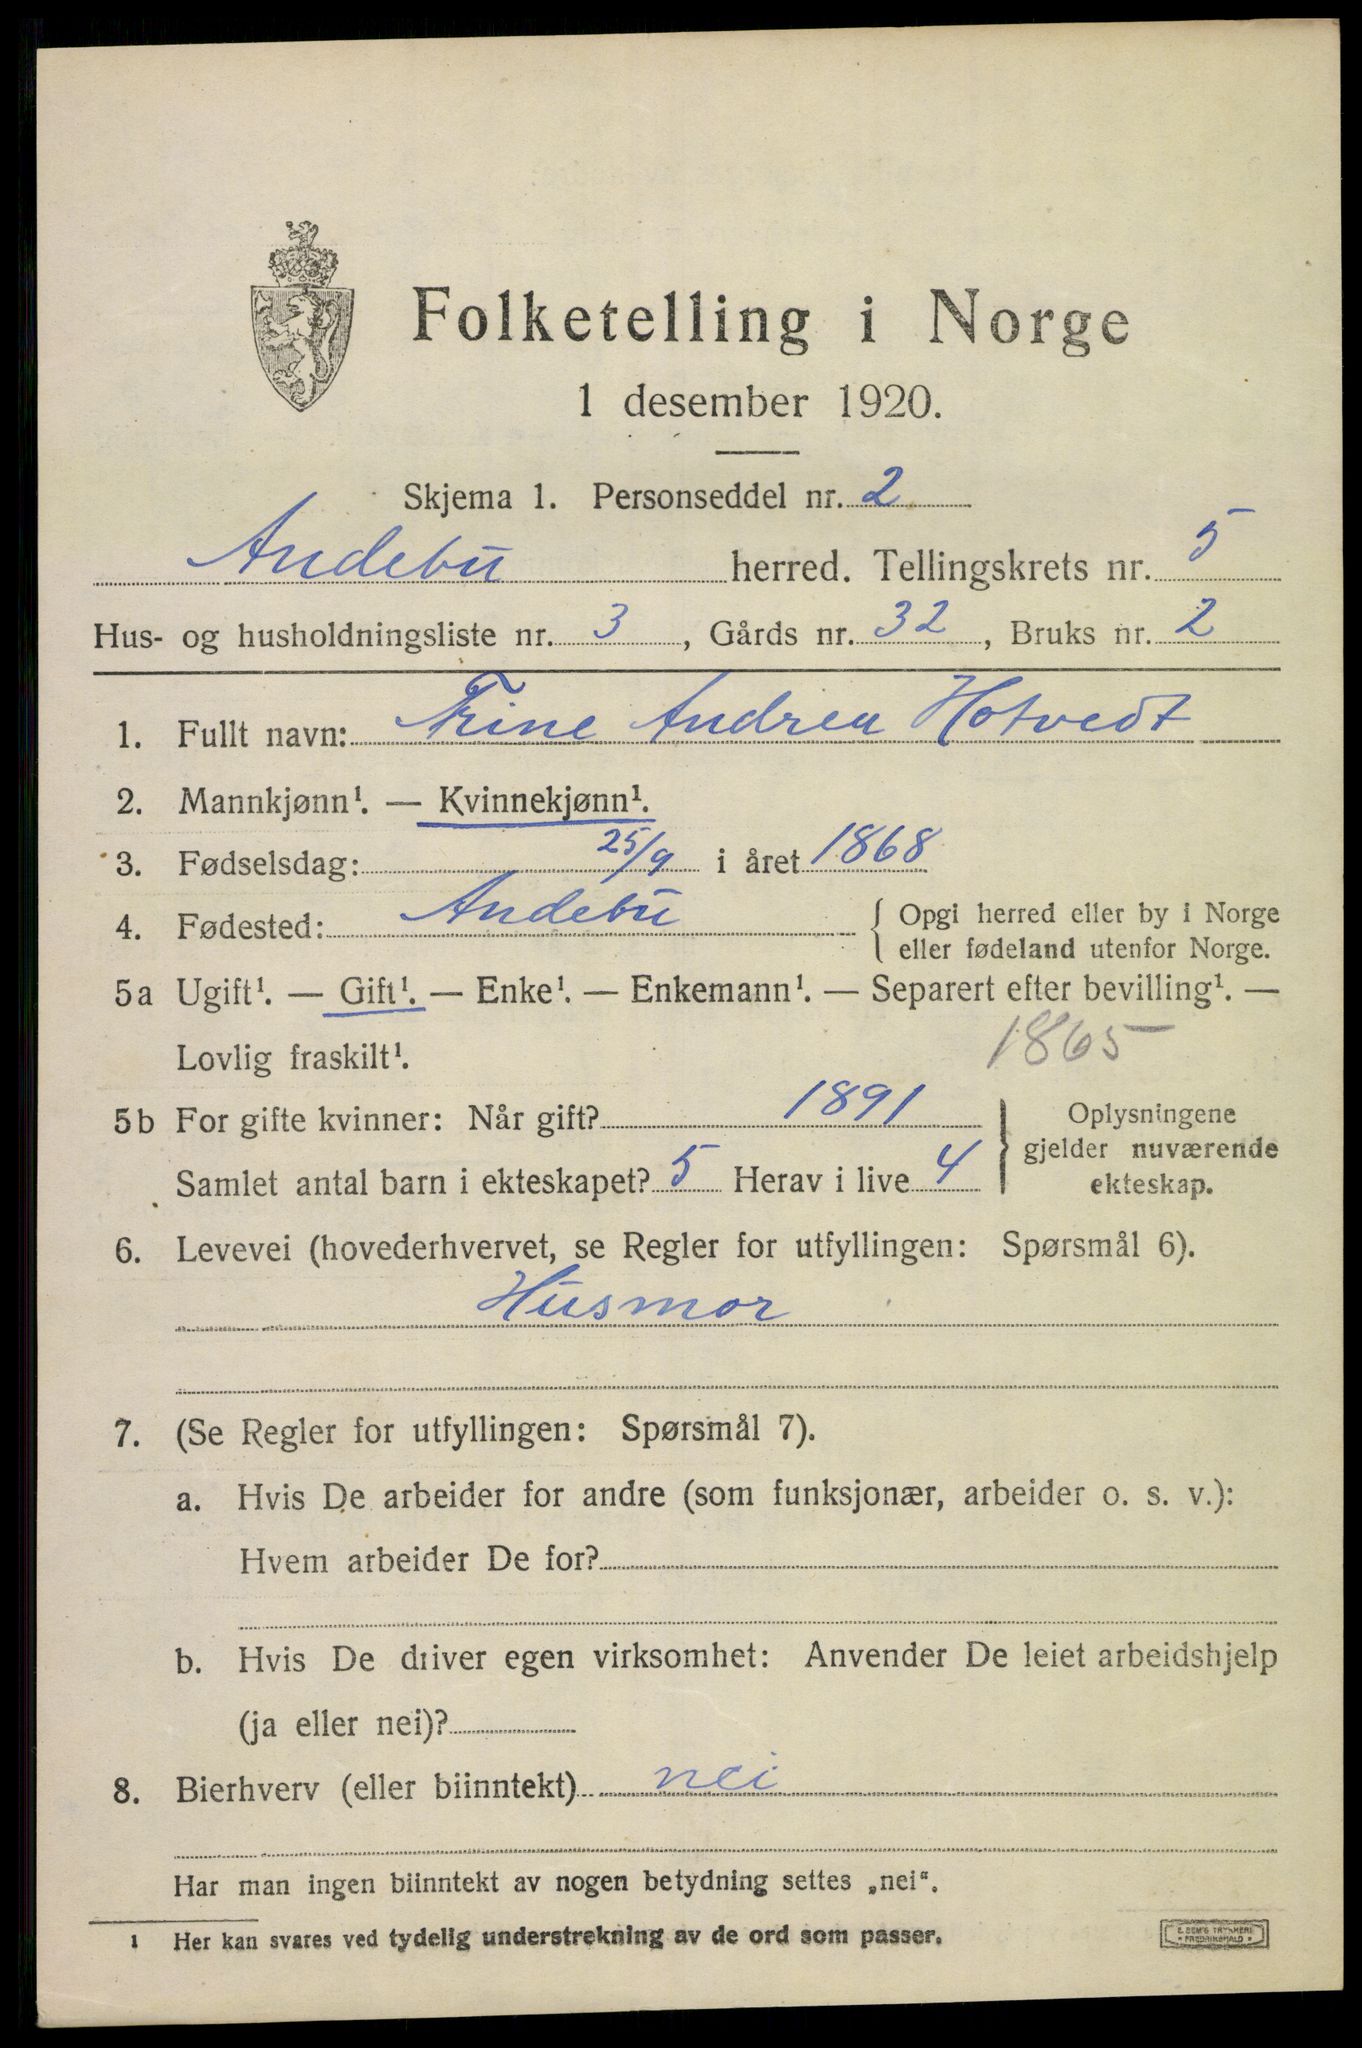 Folketelling i Norge
1 desember 1920.
Skjema 1. Personseddel nr. 2
Andebu herred. Tellingskrets nr. 5
Hus- og husholdningsliste nr. 3, Gårds nr. 32, Bruks nr. 2
1. Fullt navn: Trine Andrea Hotvedt
2. Mannkjønn¹. — Kvinnekjønn¹.
3. Fødselsdag: 25/9 i året 1868
4. Fødested: Andebu { Opgi herred eller by i Norge
eller fødeland utenfor Norge.
5a Ugift¹. — Gift¹. — Enke¹. — Enkemann¹. — Separert efter bevilling¹. —
Lovlig fraskilt¹. 1865
5b For gifte kvinner: Når gift? 1891
Samlet antal barn i ekteskapet? 5 Herav i live 4
} Oplysningene
gjelder nuværende
ekteskap.
6. Levevei (hovederhvervet, se Regler for utfyllingen: Spørsmål 6).
Husmor
7. (Se Regler for utfyllingen: Spørsmål 7).
a. Hvis De arbeider for andre (som funksjonær, arbeider o. s. v.):
Hvem arbeider De for?
b. Hvis De driver egen virksomhet: Anvender De leiet arbeidshjelp
(ja eller nei)?
8. Bierhverv (eller biinntekt) nei
Har man ingen biinntekt av nogen betydning settes „nei".
1 Her kan svares ved tydelig understrekning av de ord som passer.
E. SEM'S TRYKKERI
FREDRIKSHALD